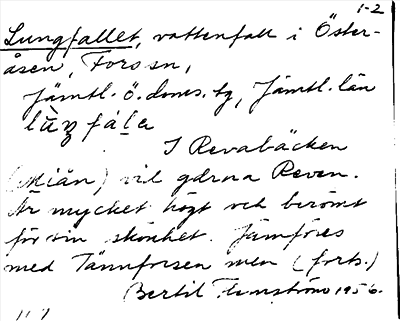 1-2
Lungfallet, vattenfall i Öster-
åsen, Fors sn,
Jämtl. ö. doms. tg, Jämtl. län
I Revabäcken
vid gärna Reven.
Är mycket högt och berömt
för sin skönhet. Jämföres
med Tännforsen men (forts.)
Bertil 1956.